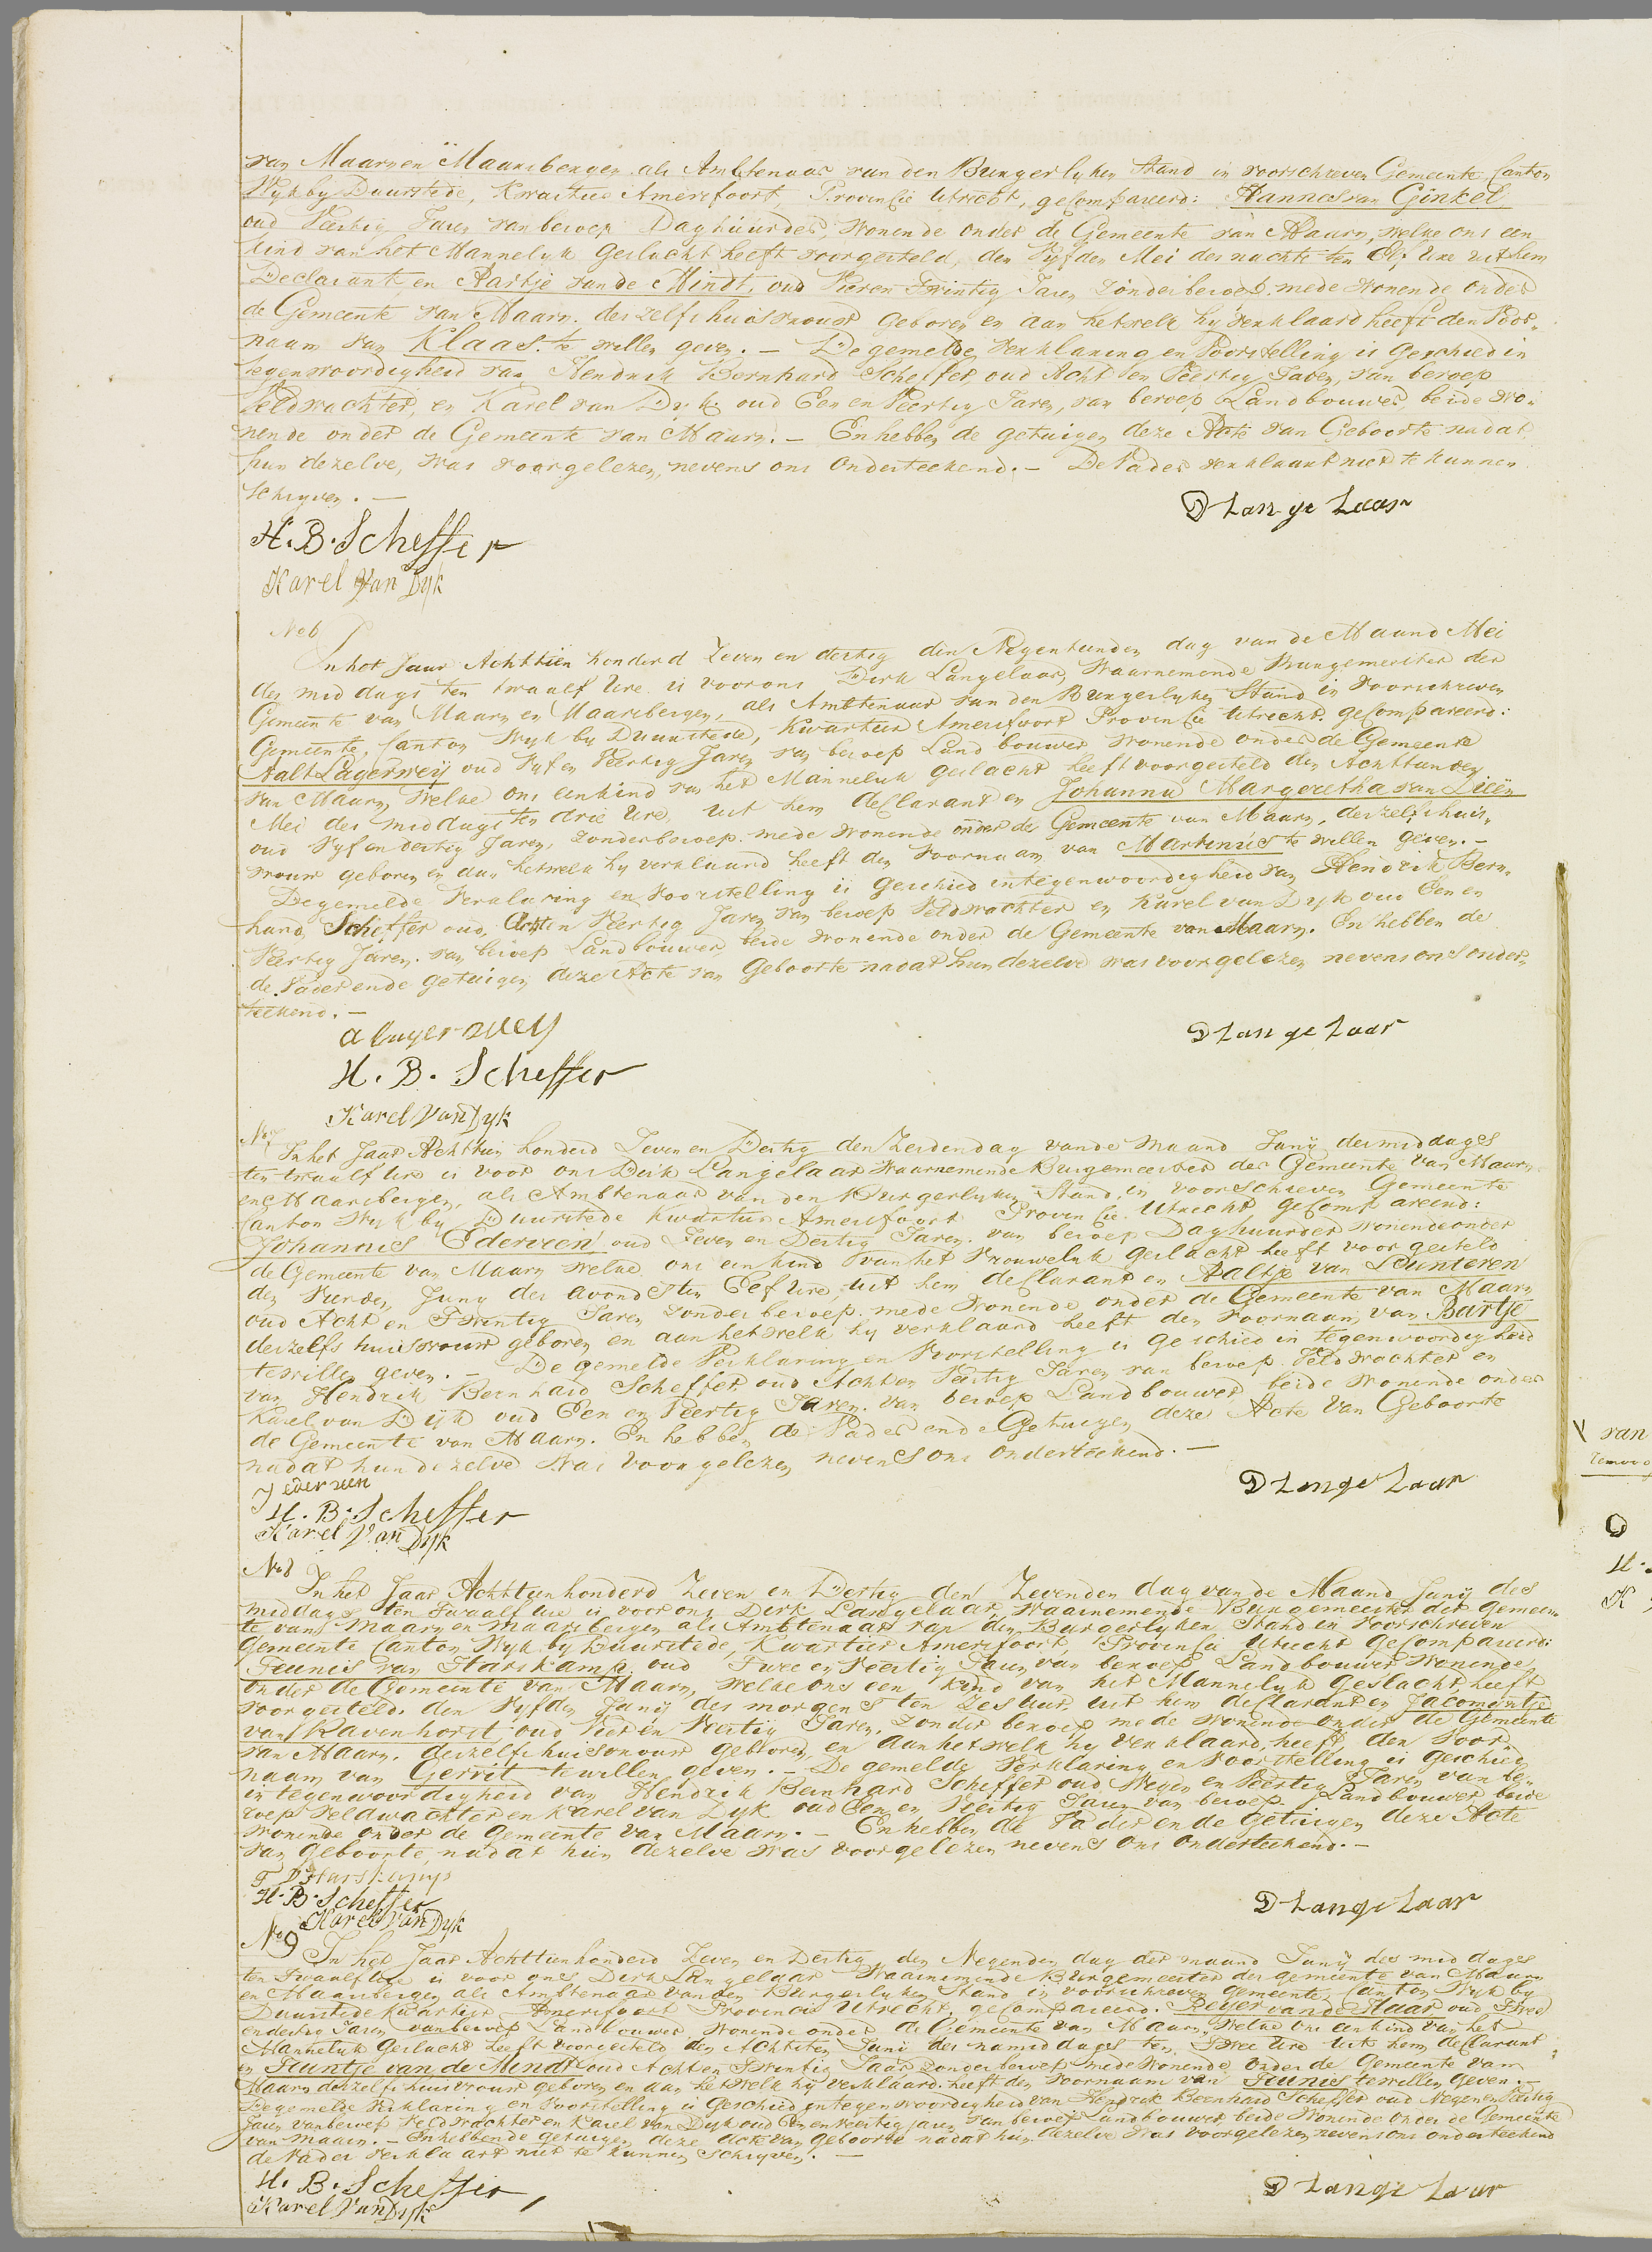 van Maarn en Maarsbergen als Ambtenaar van den Burgerlyken Stand in voorschreven Gemeente Canton
Wyk by Duurstede, Kwartier Amersfoort, Provincie Utrecht, gecompareerd: Hannes van Ginkel
oud Veertig Jaren van beroep Daghuurder, wonende onder de Gemeente van Maarn, welke ons een
kind van het Mannelyk Geslacht heeft voorgesteld, den Vyfden Mei des nachts ten Elf Ure uit hem
Declarant en Aartje van de Mindt, oud Vier en Twintig Jaren zonder beroep mede wonende onder
de Gemeente van Maarn. deszelfs huisvrouw geboren en aan hetwelk hy verklaard heeft den Voor„
naam van Klaas te willen geven. — De gemelde verklaring en Voorstelling is Geschied in
tegenwoordigheid van Hendrik Bernhard Scheffer, oud Acht en Veertig Jaren, van beroep
Veldwachter, en Karel van Dyk oud Een en Veertig Jaren, van beroep Landbouwer, beide wo„
nende onder de Gemeente van Maarn. — En hebben de getuigen deze Acte van Geboorte nadat
hun dezelve, was voorgelezen, nevens ons Onderteekend. — De Vader verklaart niet te kunnen
Schryven. —
D Langelaar
H. B. Scheffer
Karel Van Dyk
No 6
In het Jaar Achttien honderd Zeven en dertig den Negentienden dag van de Maand Mei
des middags ten twaalf Ure is voor ons Dirk Langelaar, Waarnemende Burgemeester der
Gemeente van Maarn en Maarsbergen, als Ambtenaar van den Burgerlyken Stand in voorschreven
Gemeente, Canton Wyk by Duurstede, Kwartier Amersfoort Provincie Utrecht. gecompareerd:
Aalt Lagerweij oud Vyf en Veertig Jaren van beroep Landbouwer wonende onder de Gemeente
van Maarn, welke ons een kind van het Mannelijk geslacht heeft voorgesteld den Achttienden
Mei des middags ten drie Ure, uit hem declarant en Johanna Margeretha van Dieën
oud Vyf en dertig Jaren, zonder beroep mede wonende onder de Gemeente van Maarn, deszelfs huis„
vrouw geboren en aan hetwelk hy verklaard heeft den Voornaam van Martinus te willen geven. —
De gemelde Verklaring en Voorstelling is Geschied in tegenwoordigheid van Hendrik Bern„
hard Scheffer oud Acht en Veertig Jaren van beroep Veldwachter en Karel van Dyk oud Een en
Veertig Jaren. van beroep Landbouwer, beide wonende onder de Gemeente van Maarn. En hebben de
de Vader en de getuigen deze Acte van Geboorte nadat hun dezelve was voorgelezen nevens ons onder„
teekend. —
a lagerweij
D Langelaar
H. B. Scheffer
Karel Van Dyk
No 7
In het Jaar Achttien honderd Zeven en Dertig den Zesden dag van de Maand Junij des middags
ten twaalf Ure is voor ons Dirk Langelaar Waarnemende Burgemeester der Gemeente van Maarn
en Maarsbergen, als Ambtenaar van den Burgerlyken Stand, in voorschreven Gemeente
Canton Wyk by Duurstede Kwartier Amersfoort Provincie Utrecht, gecompareerd:
Johannes Ederveen oud Zeven en Dertig Jaren. van beroep Daghuurder wonende onder
de Gemeente van Maarn welke ons een kind van het Vrouwelyk geslacht heeft voorgesteld
den Vierden Juny des avonds ten Elf Ure, uit hem declarant en Aaltje van Lunteren
oud Acht en Twintig Jaren zonder beroep. mede wonende onder de Gemeente van Maarn
deszelfs huisvrouw geboren en aan hetwelk hy verklaard heeft den voornaam van Bartje
te willen geven. — De gemelde Verklaring en Voorstelling is geschied in tegenwoordigheid
van Hendrik Bernhard Scheffer oud Acht en Veertig Jaren van beroep Veldwachter en
Karel van Dijk oud Een en Veertig Jaren. van beroep Landbouwer, beide wonende onder
de Gemeente van Maarn. En hebben de Vader en de Getuigen deze Acte van Geboorte
nadat hun dezelve was voorgelezen nevens ons onderteekend. —
J ederveen
D Langelaar
H. B. Scheffer
Karel Van Dyk
No 8
In het Jaar Achttienhonderd Zeven en Dertig den Zevenden dag van de Maand Junij des
middags ten Twaalf Ure is voor ons Dirk Langelaar, Waarnemende Burgemeester der Gemeen„
te van Maarn en Maarsbergen als Ambtenaar van den Burgerlyken Stand in Voorschreven
Gemeente Canton Wyk by Duurstede, Kwartier Amersfoort Provincie Utrecht Gecompareerd:
Teunis van Harskamp. oud Twee en Veertig Jaren van beroep Landbouwer wonende
onder de Gemeente van Maarn, welke ons een kind van het Mannelyk Geslacht heeft
voorgesteld. den Vyfden Junij des morgens ten Zes uur, uit hem declarant en Jacomijntje
van Ravenhorst oud Vier en Veertig Jaren. zonder beroep mede wonende onder de Gemeente
van Maarn. deszelfs huisvrouw geboren, en aan hetwelk hy verklaard heeft den Voor„
naam van Gerrit te willen geven. — De gemelde Verklaring en Voorstelling is Geschied
in tegenwoordigheid van Hendrik Bernhard Scheffer oud Negen en Veertig Jaren van be„
roep Veldwachter en Karel van Dyk oud Een en Veertig Jaren van beroep Landbouwer beide
wonende onder de Gemeente van Maarn. — En hebben de Vader en de Getuigen deze Acte
van Geboorte, nadat hun dezelve was voorgelezen nevens ons onderteekend. —
T V Harskamp
H. B. Scheffer
D Langelaar
Karel Van Dyk
No 9
In het Jaar Achttienhonderd Zeven en Dertig, den Negenden dag der maand Junij des middags
ten Twaalf Ure is voor ons Dirk Langelaar Waarnemende Burgemeester der gemeente van Maarn
en Maarsbergen als Ambtenaar van den Burgerlyken Stand in voorschreven gemeente, Canton Wyk by
Duurstede Kwartier Amersfoort Provincie Utrecht, gecompareerd. Reijer van de Haar oud Twee
en dertig Jaren van beroep Landbouwer wonende onder de Gemeente van Maarn, welke ons een kind van het
Mannelyk Geslacht heeft voorgesteld den Achtsten Juni des namiddags ten Twee Ure uit hem declarant
en Teuntje van de Mindt oud Acht en Twintig Jaar zonder beroep mede wonende onder de Gemeente van
Maarn deszelfs huisvrouw geboren en aan hetwelk hij verklaard heeft den voornaam van Teunis te willen geven. —
De gemelde Verklaring en Voorstelling is Geschied in tegenwoordigheid van Hendrik Bernhard Scheffer oud Negen en Veertig
Jaren van beroep Veldwachter en Karel van Dyk oud Een en Veertig Jaren van beroep Landbouwer, beide wonende onder de Gemeente
van Maarn. — En hebben de getuigen deze Acte van Geboorte nadat hun dezelve was voorgelezen, nevens ons onderteekend
de Vader Verklaart niet te kunnen Schryven. —
H. B. Scheffer
D Langelaar
Karel Van Dyk